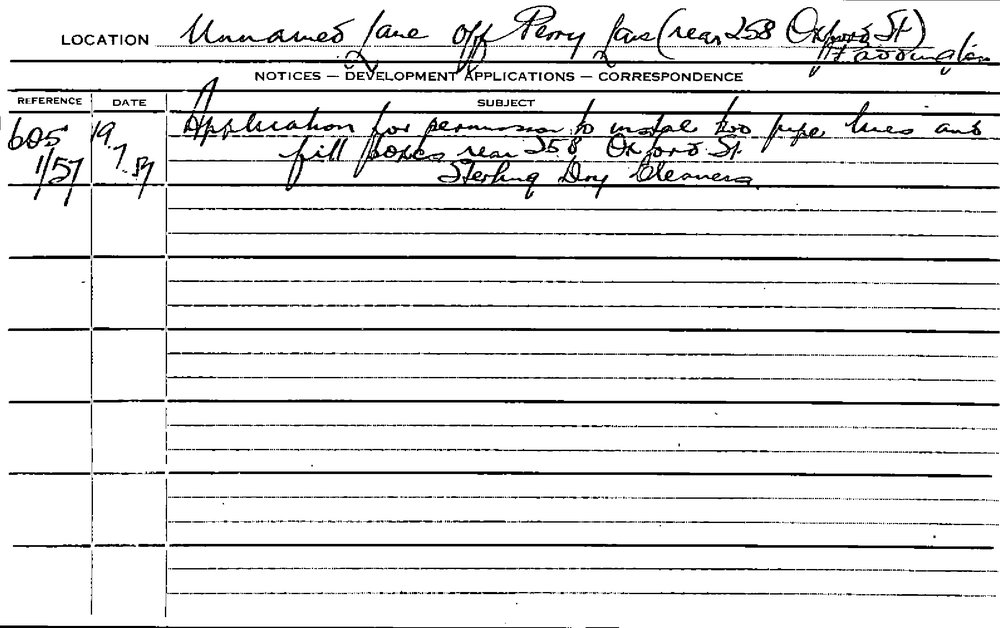 LOCATION Unnamed Lane off Perry Lane (rear 258 Oxford St)
Paddington
NOTICES — DEVELOPMENT APPLICATIONS — CORRESPONDENCE
REFERENCE DATE SUBJECT
605 19. Application for permission to instal two pipe lines and
1/57 7.57 fill boxes rear 258 Oxford St.
Sterling Dry Cleaners.